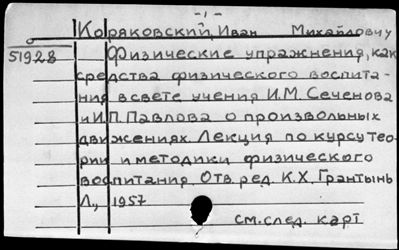 -1-
Коряковский, Иван Михайлович
51928
Физические упражнения, как
средства физического воспита-
ния в свете учения И.М. Сеченова
и И.П. Павлова о произвольных
движениях. Лекция по курсу тео-
рии и методики физического
воспитания. Отв. ред. К.Х. Грантынь
Л., 1957
см. след. карт